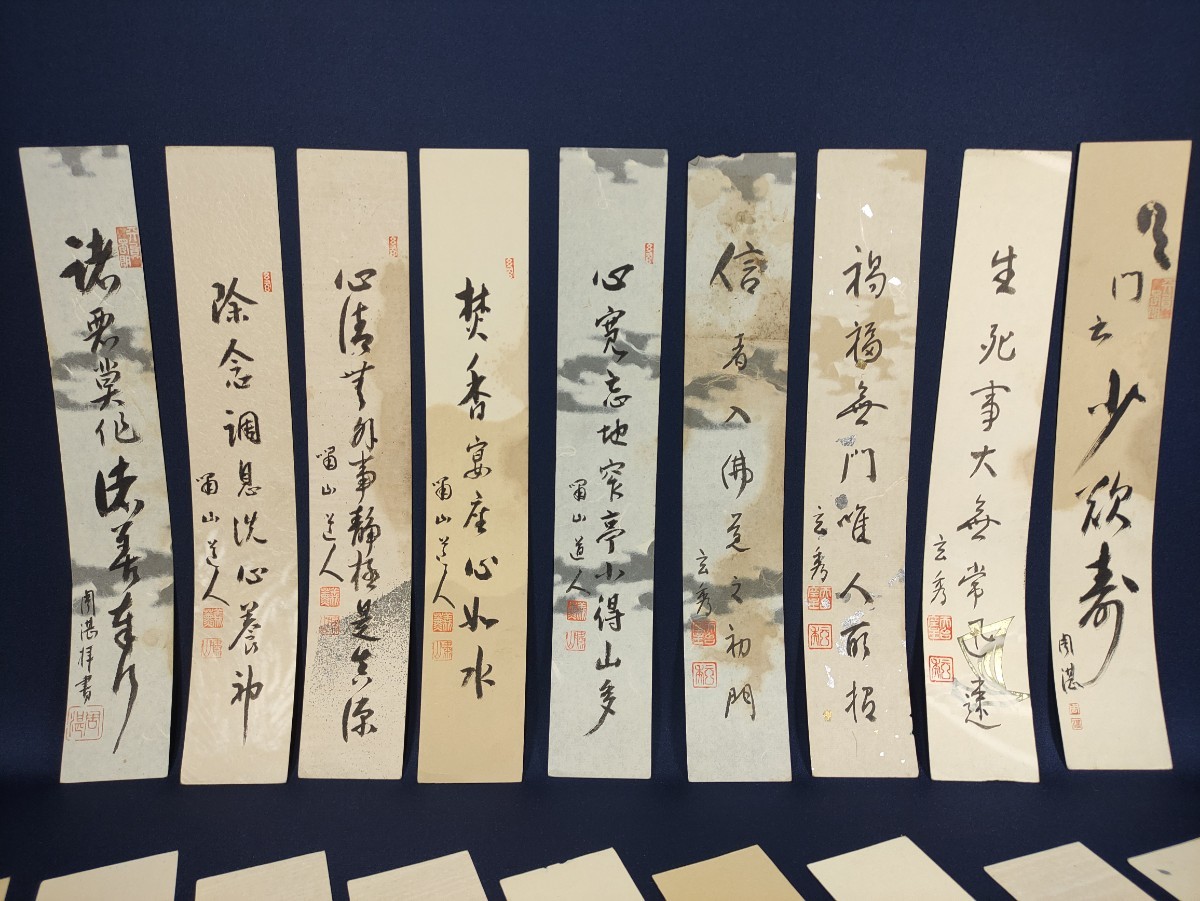 門云少欲寿
周湛
生死事大無常迅速
玄秀
禍福無門唯人所招
玄秀
信者入佛道之初門
玄秀
心寛忘地窄亭小得山多
嘯山道人
焚香宴座心如水
嘯山道人
心清無外事静極是真源
嘯山道人
除念調息洗心養神
嘯山道人
諸悪莫作諸善奉行
周湛拝書
周湛